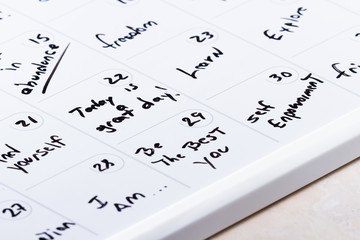 15
in
abundance
freedom
23
Learn
Explore
22
Today is
great day!
30
Self
Empowerment
21
yourself
29
Be
The Best
You
28
I
Am ...
27